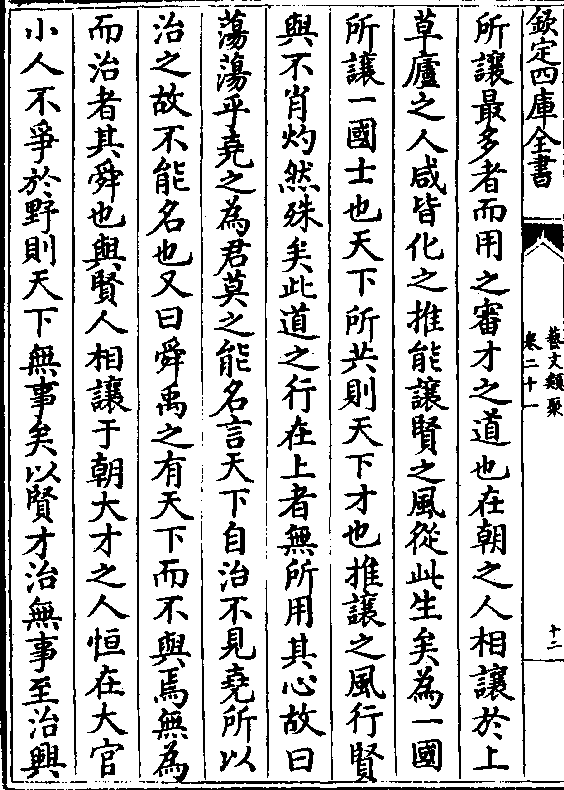 欽定四庫全書
藝文類聚
卷二十一
十二
所讓最多者而用之審才之道也在朝之人相讓於上
草廬之人咸皆化之推能讓賢之風從此生矣為一國
所讓一國士也天下所共則天下才也推讓之風行賢
與不肖灼然殊矣此道之行在上者無所用其心故曰
蕩蕩乎堯之為君莫之能名言天下自治不見堯所以
治之故不能名也又曰舜禹之有天下而不與焉無為
而治者其舜也與賢人相讓于朝大才之人恒在大官
小人不爭於野則天下無事矣以賢才治無事至治興